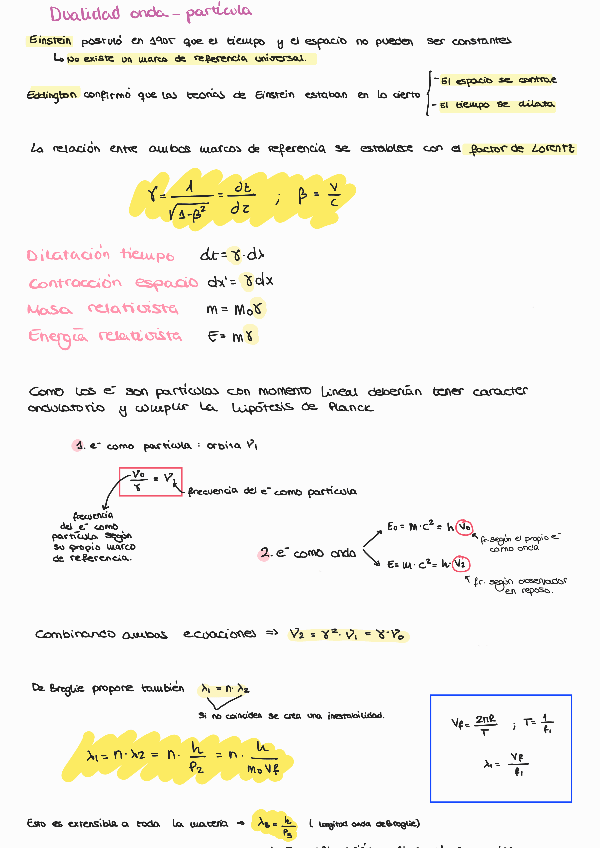 Dualidad onda - partícula
Einstein postuló en 1905 que el tiempo y el espacio no pueden ser constantes
↳ No existe un marco de referencia universal.
Eddington confirmó que las teorías de Einstein estaban en lo cierto
- El espacio se contrae
- El tiempo se dilata
La relación entre ambos marcos de referencia se establece con el factor de Lorentz
γ = 1/√(1-β²) = dt/dτ ; β = v/c
Dilatación tiempo dt = γ·dx
Contracción espacio dx' = γdx
Masa relativista m = m₀γ
Energía relativista E = mγ
Como los e⁻ son partículas con momento lineal deberían tener caracter
ondulatorio y cumplir la hipótesis de Planck
1. e⁻ como partícula : orbita ν₁
ν₀/γ = ν₁
frecuencia del e⁻ como partícula
frecuencia
del e⁻ como
partícula según
su propio marco
de referencia.
2. e⁻ como onda
E₀ = m·c² = h ν₀
fr. según el propio e⁻
como onda
E = m·c² = h·ν₂
fr. según observador
en reposo.
Combinando ambas ecuaciones => ν₂ = γ²·ν₁ = γ·ν₀
De Broglie propone también λ₁ = n·λ₂
Si no coinciden se crea una inestabilidad.
λ₁ = n·λ2 = n· h/p₂ = n· h/m₀vf
Vf = 2πR/T ; T = 1/f₁
λ₁ = Vf/f₁
Esto es extensible a toda la materia → λ_B = h/p_B ( longitud onda de Broglie)